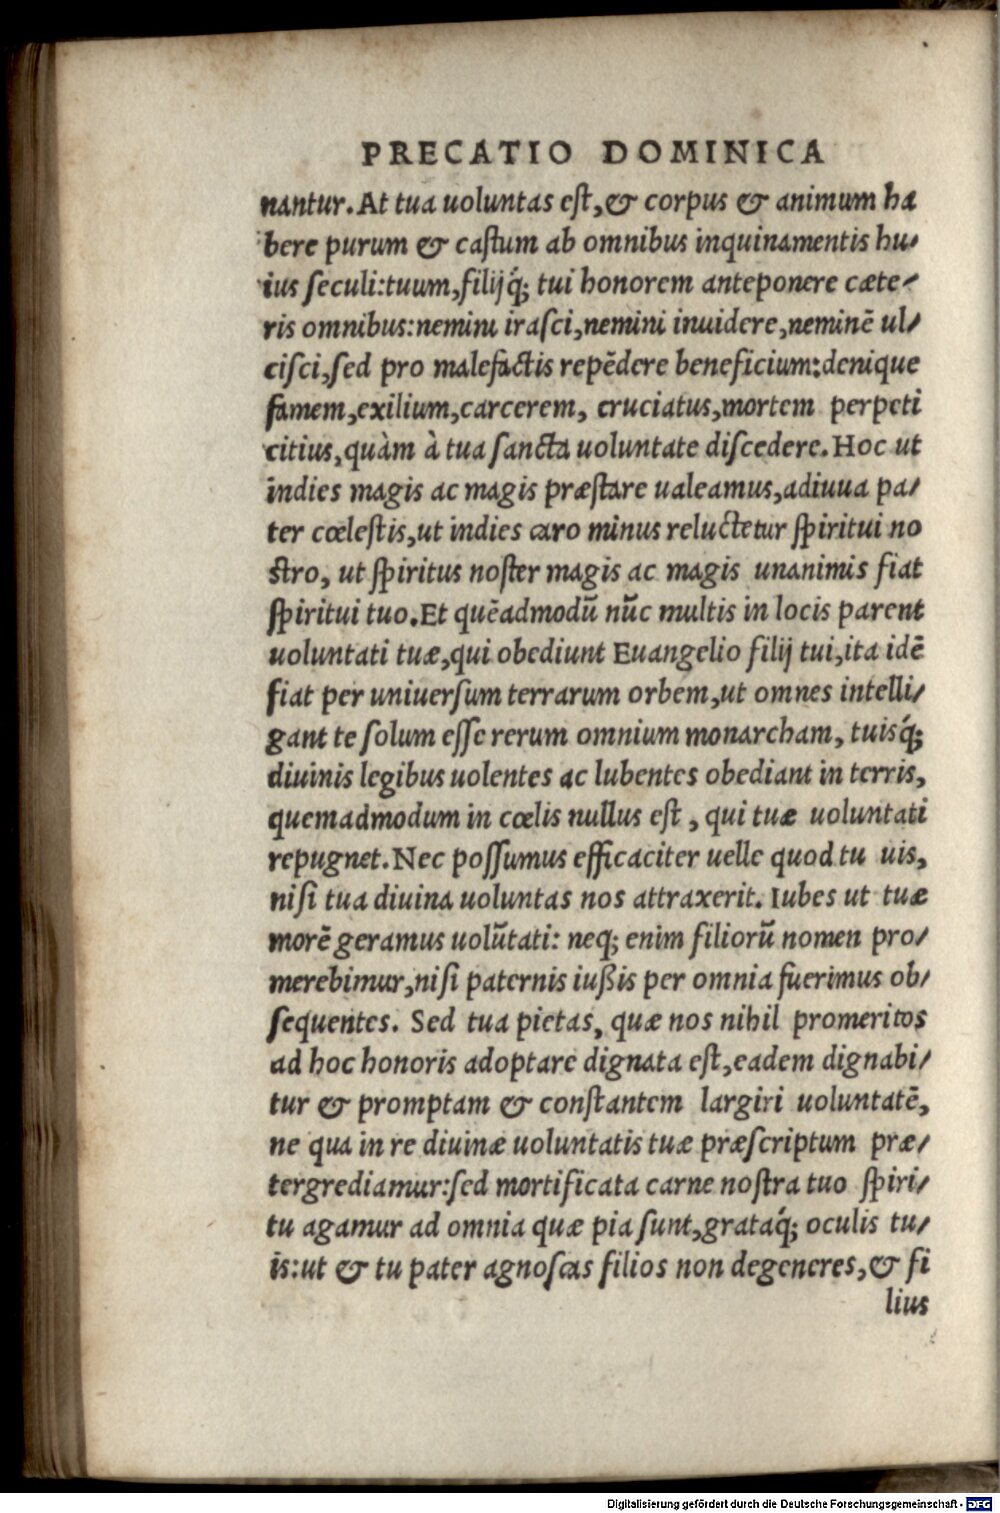 PRECATIO DOMINICA
nantur. At tua uoluntas est, & corpus & animum ha
bere purum & castum ab omnibus inquinamentis hu/
ius seculi: tuum, filijq́; tui honorem anteponere cæte/
ris omnibus: nemini irasci, nemini inuidere, neminē ul/
cisci, sed pro malefactis repēdere beneficium: denique
famem, exilium, carcerem, cruciatus, mortem perpeti
citius, quàm à tua sancta uoluntate discedere. Hoc ut
indies magis ac magis præstare ualeamus, adiuua pa/
ter cœlestis, ut indies caro minus reluctetur spiritui no
stro, ut spiritus noster magis ac magis unanimis fiat
spiritui tuo. Et quēadmodū nūc multis in locis parent
uoluntati tuæ, qui obediunt Euangelio filij tui, ita idē
fiat per uniuersum terrarum orbem, ut omnes intelli/
gant te solum esse rerum omnium monarcham, tuisq́;
diuinis legibus uolentes ac lubentes obediant in terris,
quemadmodum in cœlis nullus est, qui tuæ uoluntati
repugnet. Nec possumus efficaciter uelle quod tu uis,
nisi tua diuina uoluntas nos attraxerit. Iubes ut tuæ
morē geramus uolūtati: neq; enim filiorū nomen pro/
merebimur, nisi paternis iußis per omnia fuerimus ob/
sequentes. Sed tua pietas, quæ nos nihil promeritos
ad hoc honoris adoptare dignata est, eadem dignabi/
tur & promptam & constantem largiri uoluntatē,
ne qua in re diuinæ uoluntatis tuæ præscriptum præ/
tergrediamur: sed mortificata carne nostra tuo spiri/
tu agamur ad omnia quæ pia sunt, grataq́; oculis tu/
is: ut & tu pater agnoscas filios non degeneres, & fi
lius
Digitalisierung gefördert durch die Deutsche Forschungsgemeinschaft - DFG